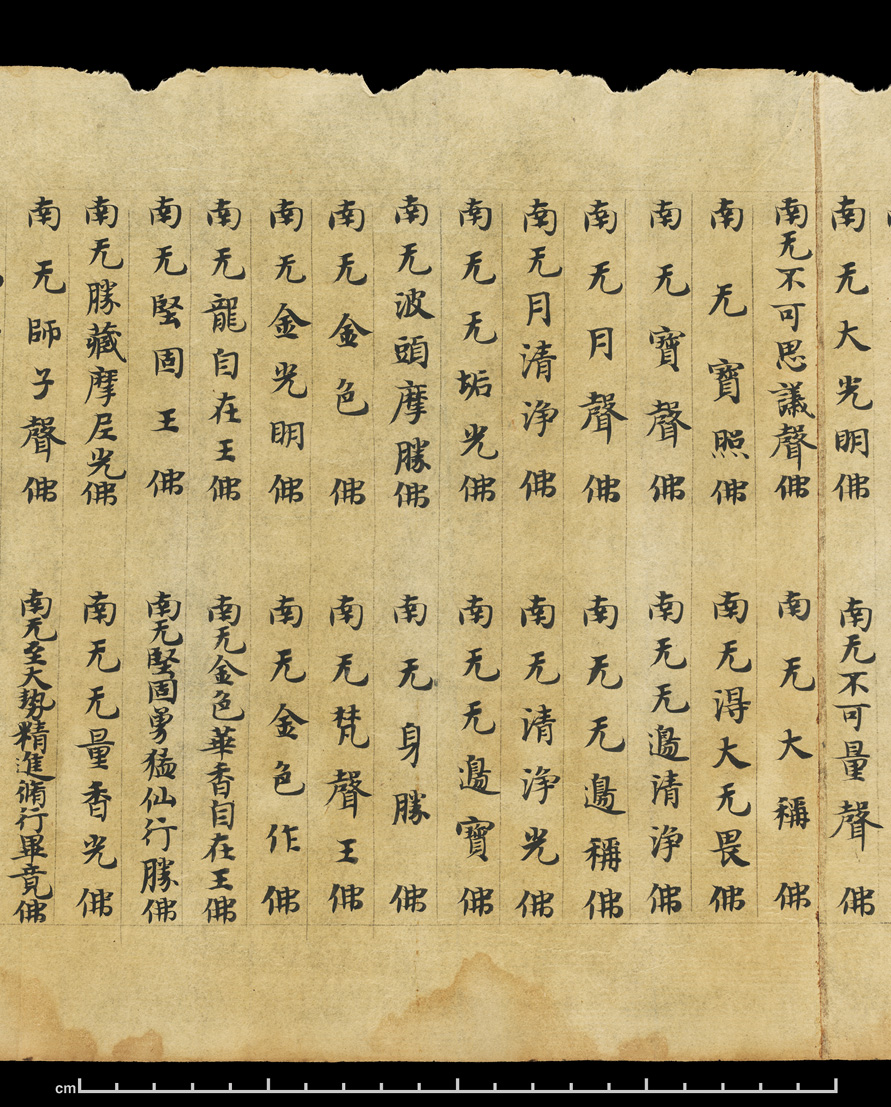 南无大光明佛
南无不可量聲佛
南无不可思議聲佛
南无大稱佛
南无寶照佛
南无淂大无畏佛
南无寶聲佛
南无无邉清浄佛
南无月聲佛
南无无邉稱佛
南无月清浄佛
南无清浄光佛
南无无垢光佛
南无无邉寶佛
南无波頭摩勝佛
南无身勝佛
南无金色佛
南无梵聲王佛
南无金光明佛
南无金色作佛
南无龍自在王佛
南无金色華香自在王佛
南无堅固王佛
南无堅固勇猛仙行勝佛
南无勝藏摩尼光佛
南无无量香光佛
南无師子聲佛
南无至大势精進脩行畢竟佛
cm